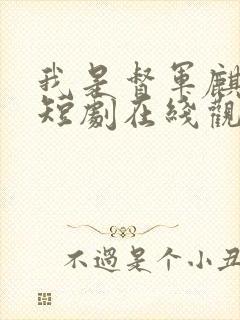 我是督军麒
短剧在线觀
不過是个小丑